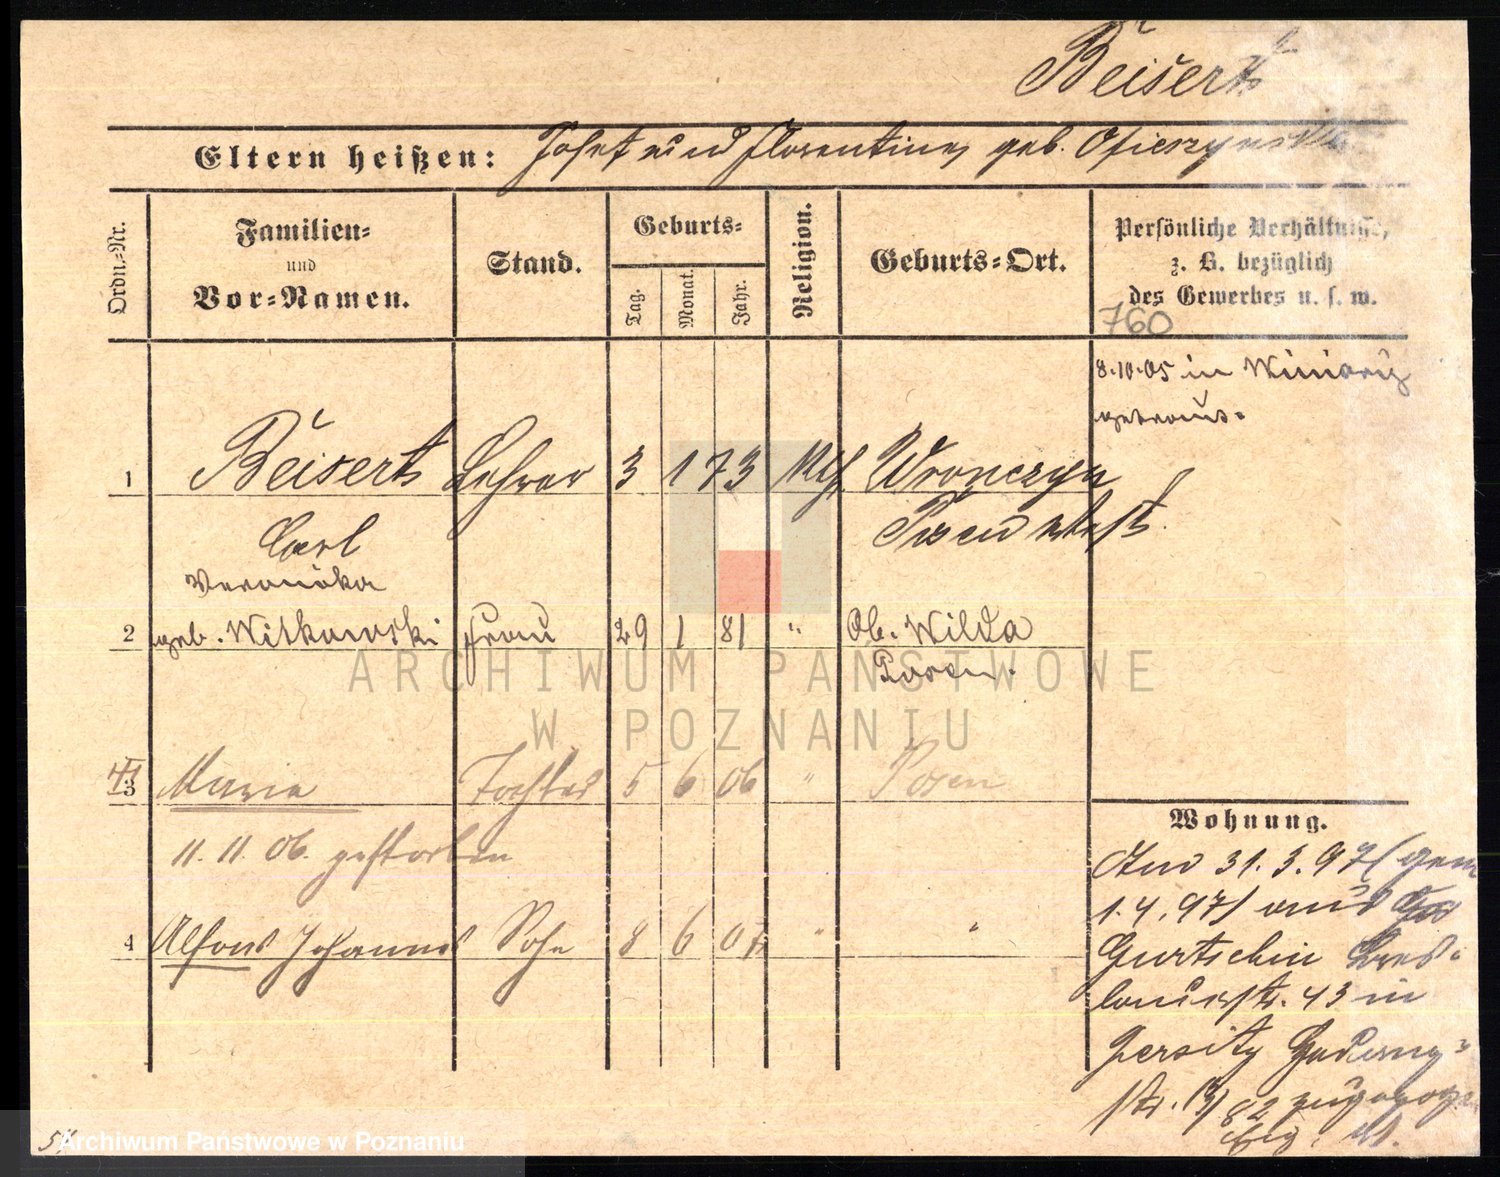 Beisert
Eltern heißen: Josef und Florentine, geb. Ofierzynska
Ordn.-Nr.
Familien-
und
Vor-Namen.
Stand.
Geburts-
Tag.
Monat.
Jahr.
Religion.
Geburts-Ort.
Persönliche Verhältnisse,
z. B. bezüglich
des Gewerbes u. s. w.
760
8.10.05 in Winiary
getraut.
1 Beisert Lehrer 3 1 73 Kth. Wronczyn
Carl Posen
Veronika
2 geb. Witkowski Frau 29 1 81 " Ob. Wilda
Posen.
3 Marie Tochter 5 6 06 " Posen
11. 11. 06. gestorben
4 Alfons Johannes Sohn 8 6 07 " "
Wohnung.
Am 31.3.97 (gem
1.4.97) aus
Gurtschin Bres-
lauerstr. 43 in
Jersitz Hedwig-
str. zugezogen
ARCHIWUM PAŃSTWOWE
W POZNANIU
Archiwum Państwowe w Poznaniu